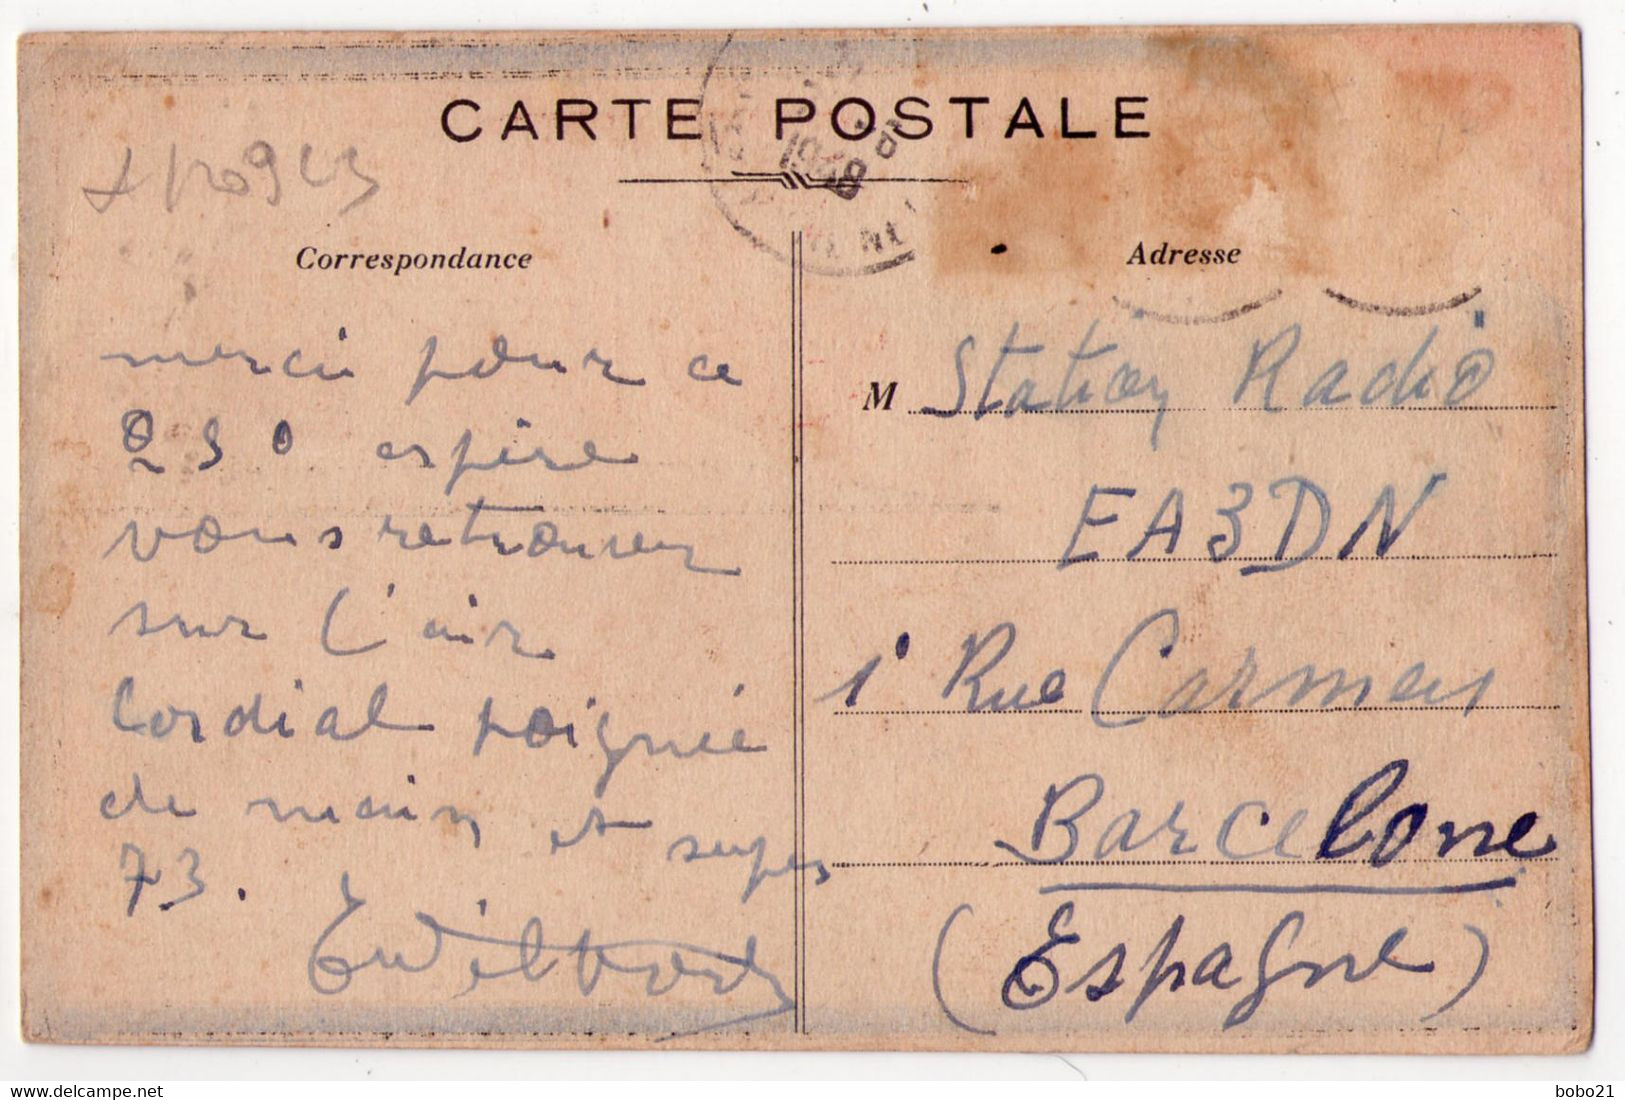 CARTE POSTALE
Correspondance
merci pour ce
QSO espère
vous retrouver
sur l'air
Cordial poignée
de main et supes
73.
Adresse
M Station Radio
EA3DN
1 Rue Carmen
Barcelone
(Espagne)
www.delcampe.net
bobo21